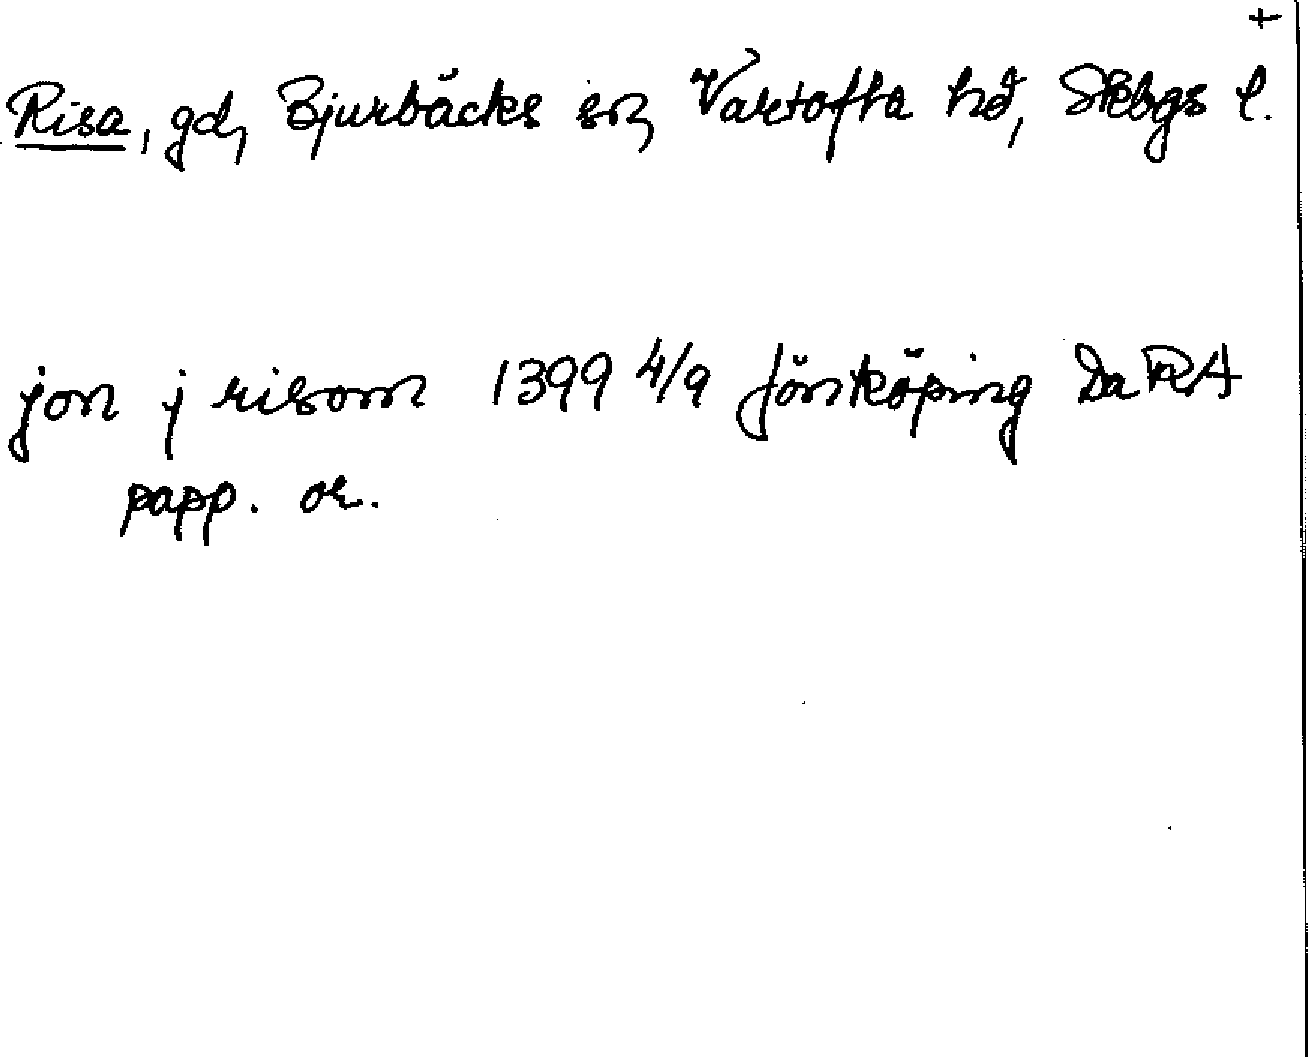 +
Risa, gd, Bjurbäcks sn, Vartofta hd, Skbgs l.
jon j risom 1399 4/9 Jönköping Da RA
papp. or.